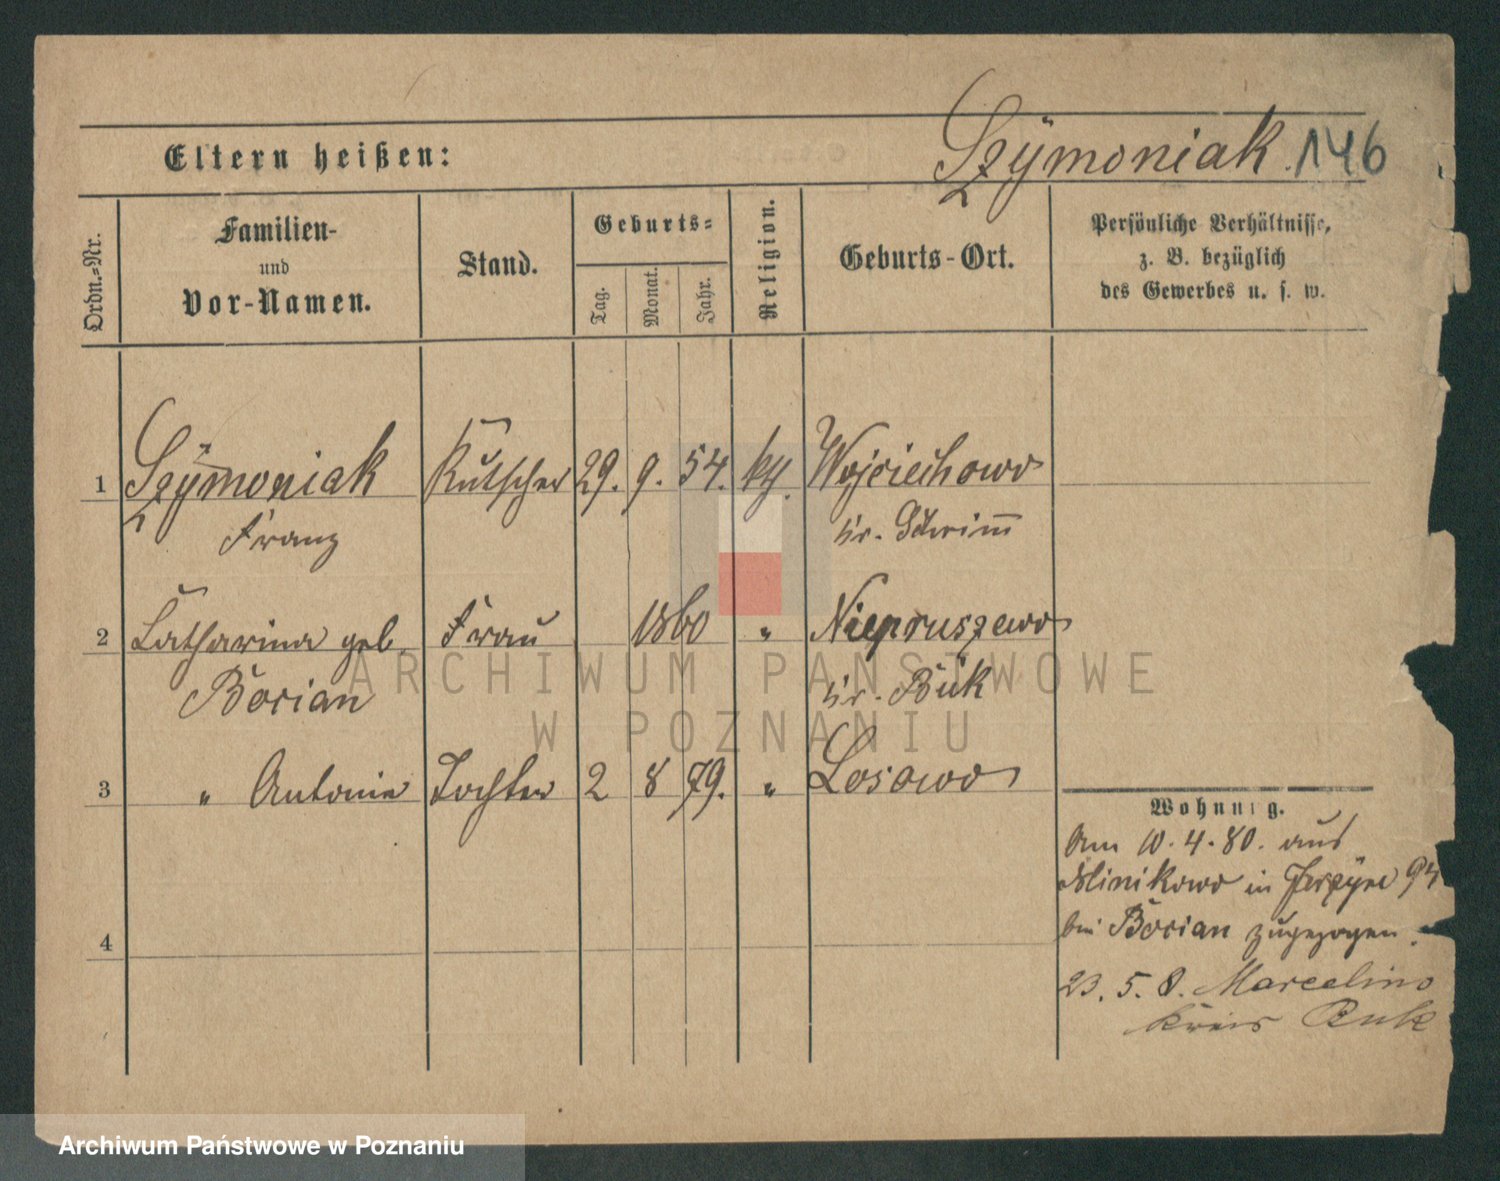 Szÿmoniak. 146
Eltern heißen:
Ordn.-Nr.
Familien-
und
Vor-Namen.
Stand.
Geburts-
Tag.
Monat.
Jahr.
Religion.
Geburts-Ort.
Persönliche Verhältnisse,
z. B. bezüglich
des Gewerbes u. s. w.
1 Szÿmoniak Kutscher 29. 9. 54. Wojciechowo
Franz Kr. Schrimm
2 Katharina geb. Frau 1860 " Niepruszewo
Borian Kr. Buk
3 " Antonie Tochter 2 8 79. " Losowo
4
Wohnung.
Am 10. 4. 80. aus
in
bei Borian zugezogen.
23. 5. 8. Marcelino
Kreis Buk
ARCHIWUM PAŃSTWOWE
W POZNANIU
Archiwum Państwowe w Poznaniu